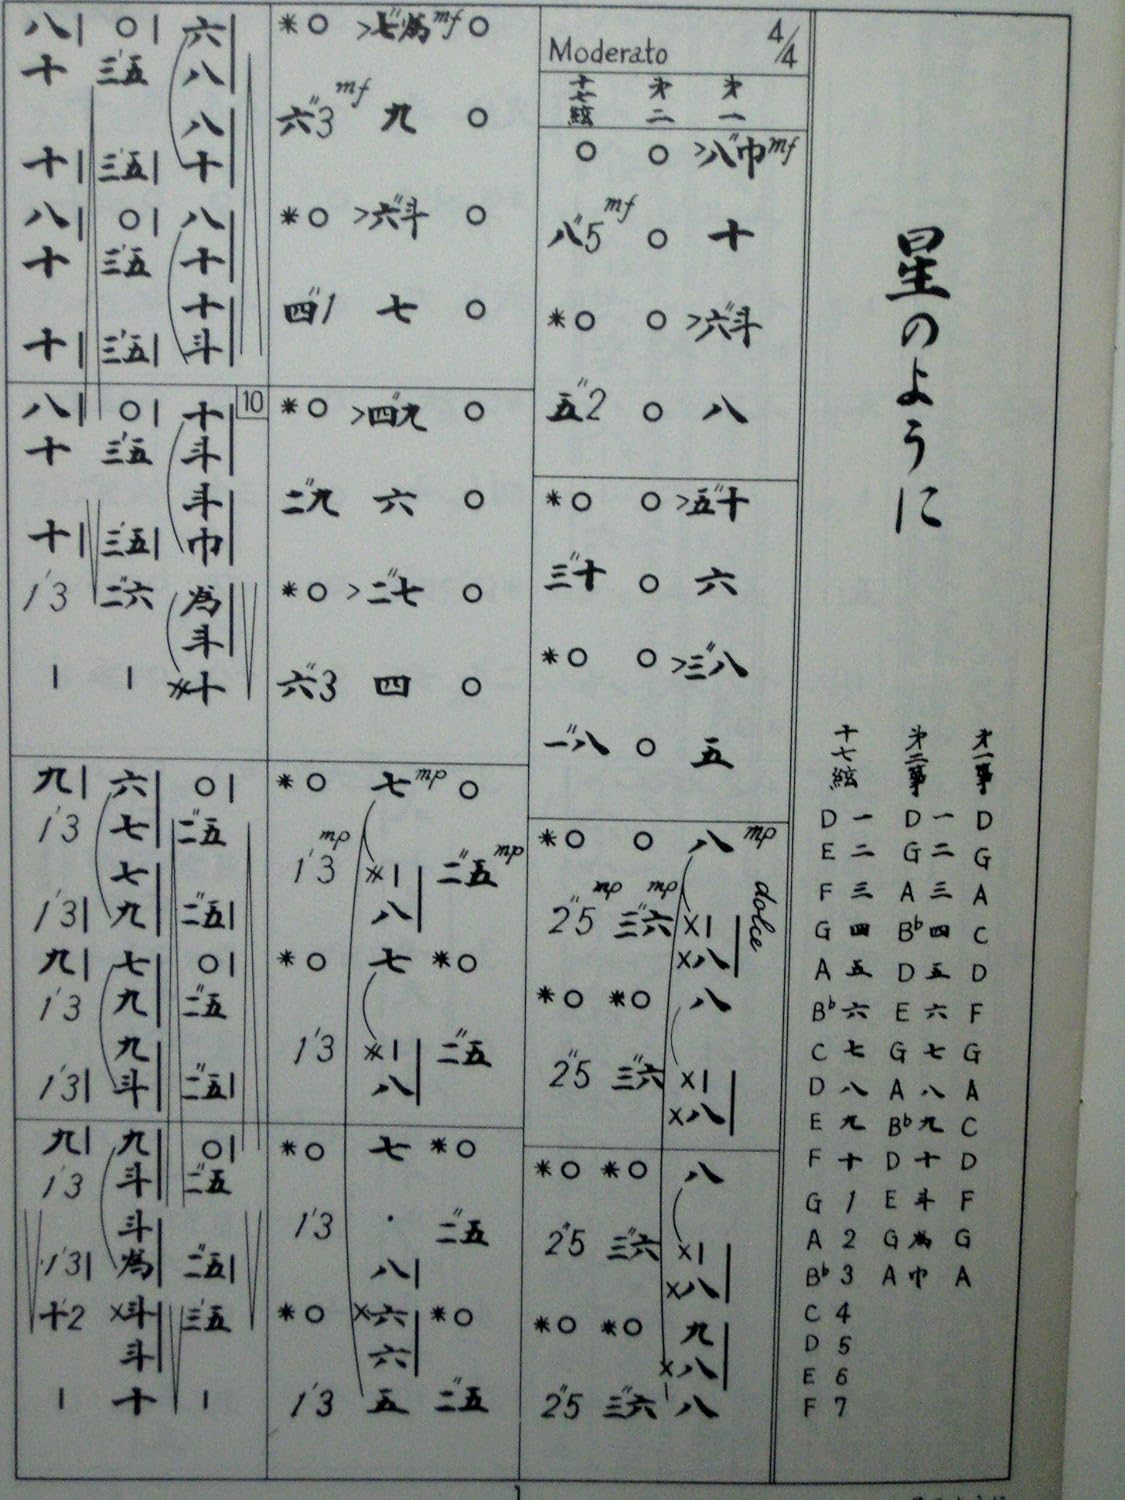 星のように
十七絃 第二箏 第一箏
D 一 D 一 D
E 二 G 二 G
F 三 A 三 A
G 四 B♭ 四 C
A 五 D 五 D
B♭ 六 E 六 F
C 七 G 七 G
D 八 A 八 A
E 九 B♭ 九 C
F 十 D 十 D
G 1 E 斗 F
A 2 G 為 G
B♭ 3 A 巾 A
C 4
D 5
E 6
F 7
Moderato 4/4
十七絃 第二 第一
○ ○ >八"巾 mf
八"5 mf ○ 十
*○ ○ >六"斗
五"2 ○ 八
*○ ○ >五"十
三"十 ○ 六
*○ ○ >三"八
一"八 ○ 五
*○ ○ 八 mp
dolce
2"5 mp 三"六 mp ×|
×八|
*○ *○ 八
2"5 三"六 ×|
×八|
*○ *○ 八
2"5 三"六 ×|
×八|
*○ *○ 九
×八|
2"5 三"六 八
*○ >七"為 mf ○
六"3 mf 九 ○
*○ >六"斗 ○
四"1 七 ○
*○ >四"九 ○
二"九 六 ○
*○ >二"七 ○
六"3 四 ○
*○ 七 mp ○
1'3 mp ×| 二"五 mp
八|
*○ 七 *○
1'3 ×| 二"五
八|
*○ 七 *○
1'3 ・ 二"五
八|
*○ ×六 *○
六|
1'3 五 二"五
八| ○| 六
十 三'五 八
八
十| 三'五| 十
八| ○| 八
十 三'五 十
十
十| 三'五| 斗
10
八| ○| 十
十 三'五 斗
斗
十| 三'五| 巾
1'3 二"六 為
斗
| | ×十
九| 六 ○|
1'3 七 二"五
七
1'3| 九 二"五|
九| 七 ○|
1'3 九 二"五
九
1'3| 斗 二"五|
九| 九 ○|
1'3 斗 二"五
斗
1'3| 為 二"五|
十'2 ×斗 三'五
斗
| 十 |
1